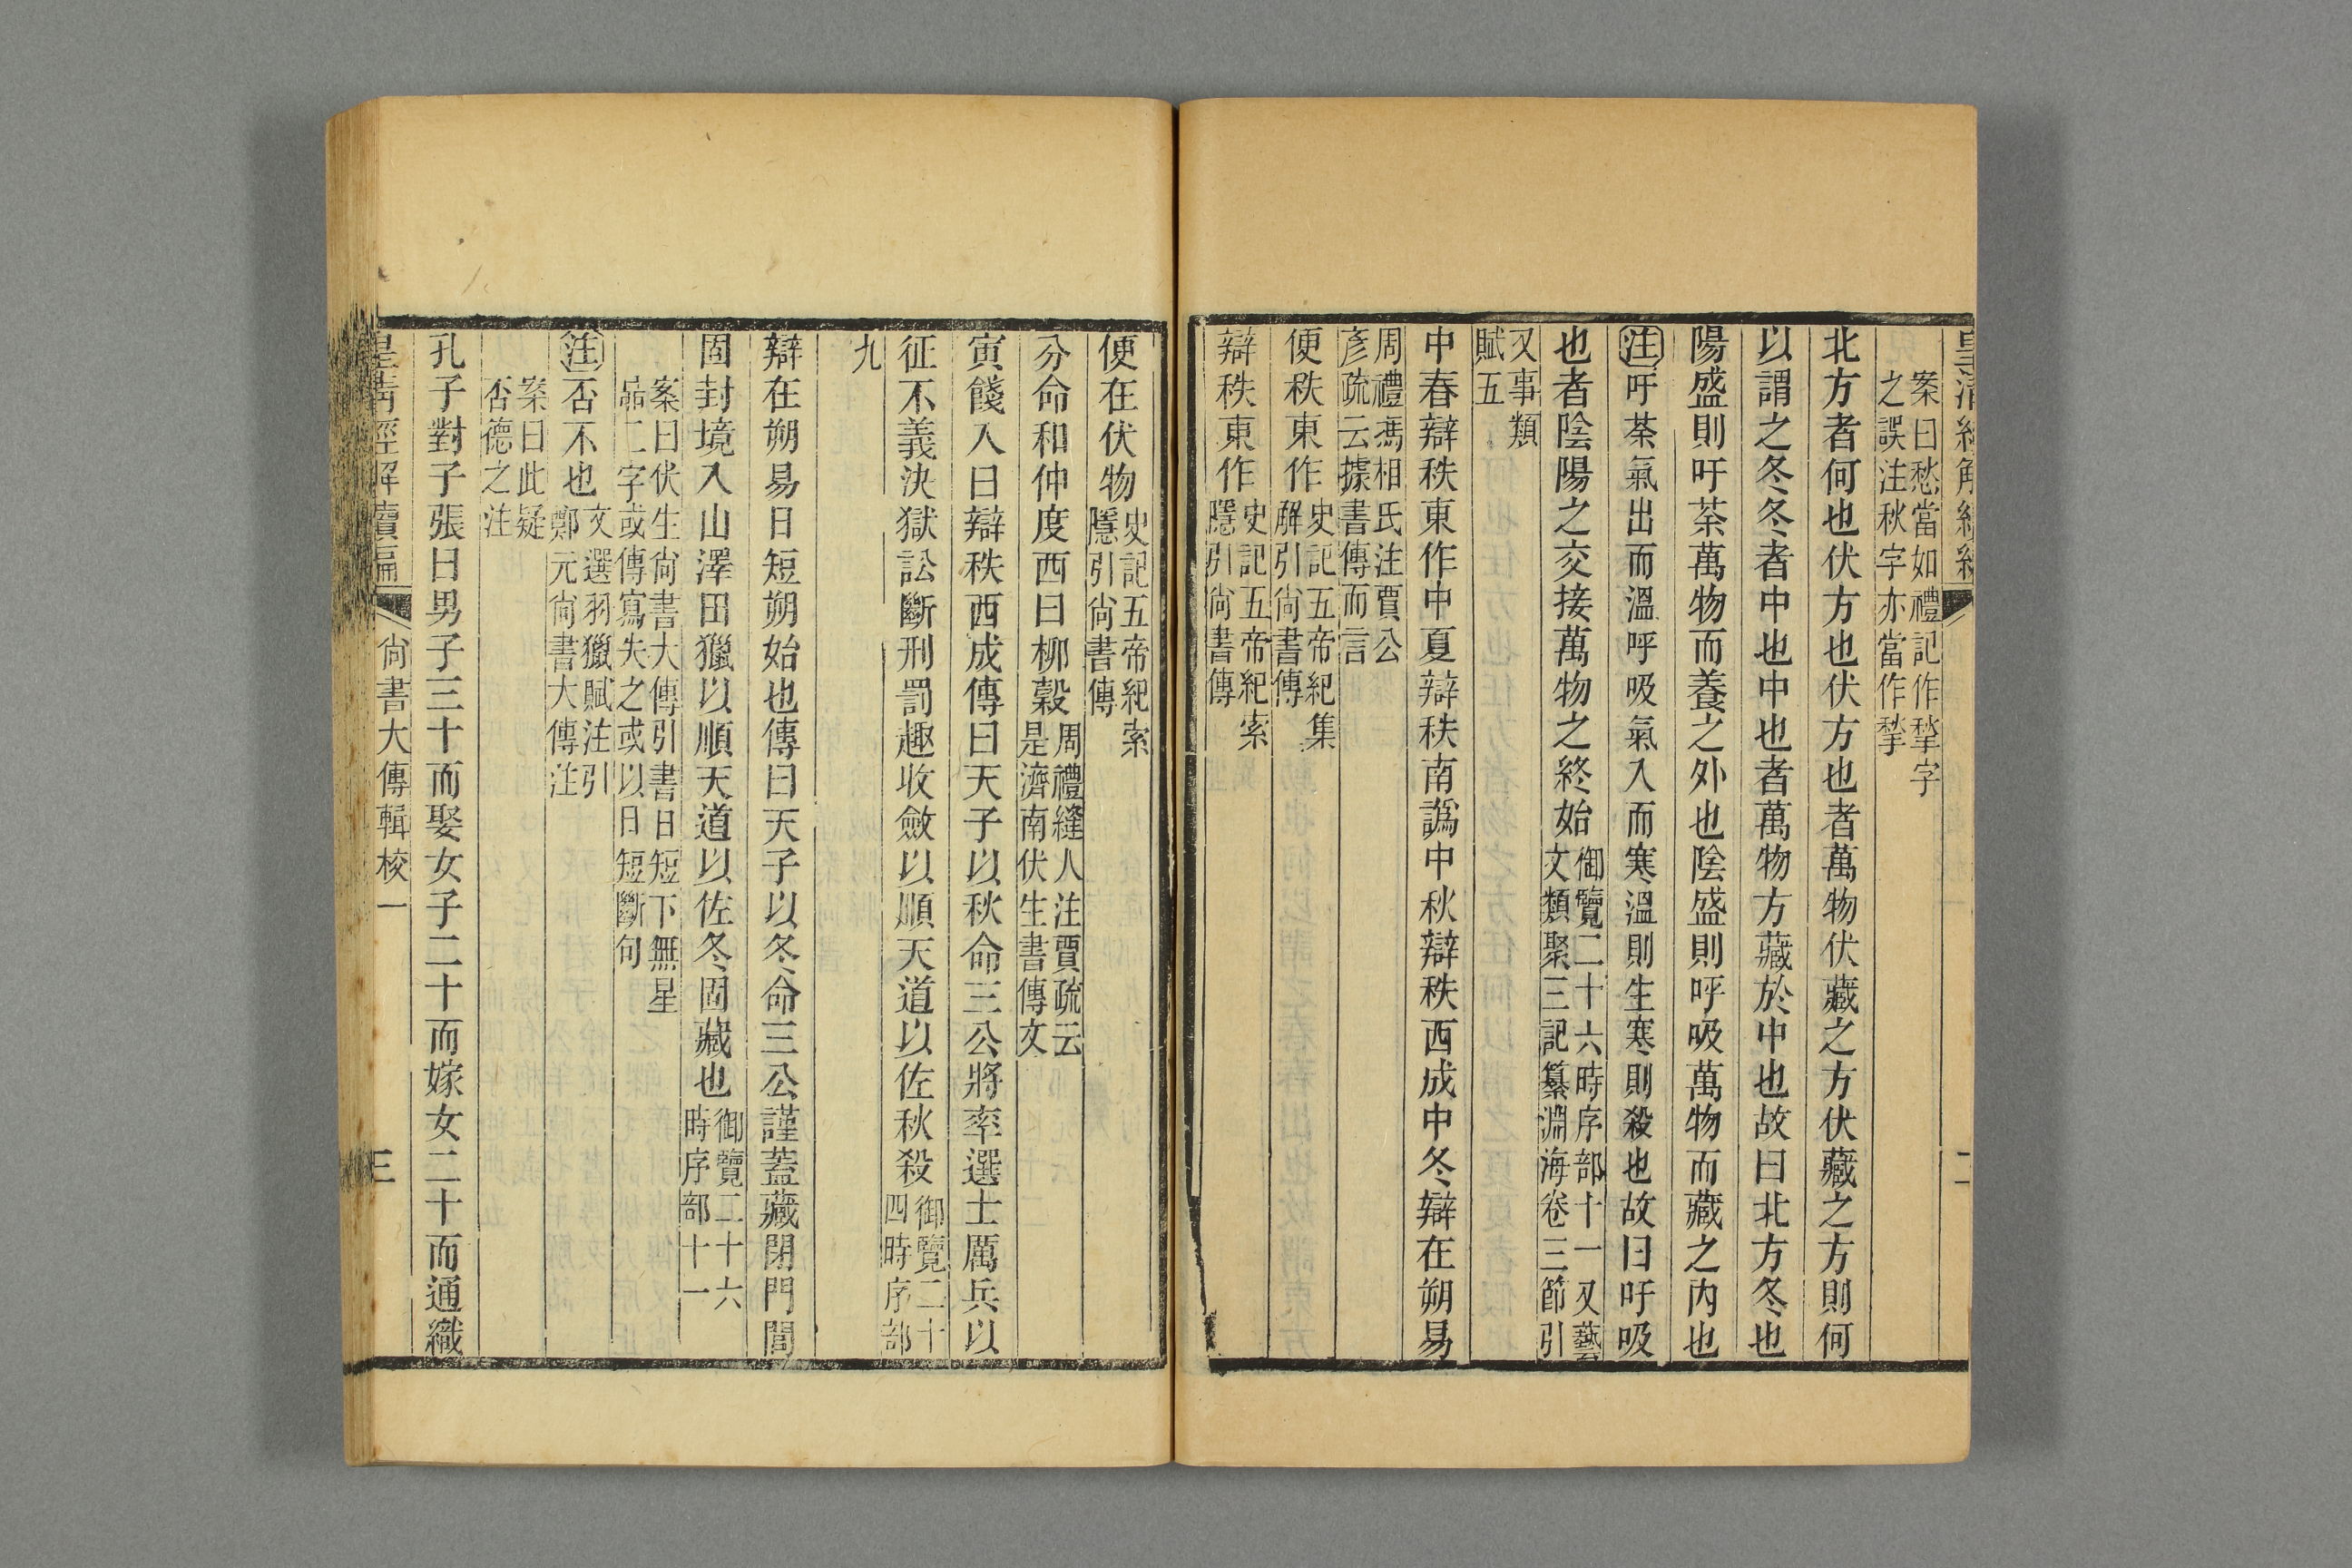 皇清經解續編
二
案曰愁當如禮記作揫字
之誤注秋字亦當作揫
北方者何也伏方也伏方也者萬物伏藏之方伏藏之方則何
以謂之冬冬者中也中也者萬物方藏於中也故曰北方冬也
陽盛則吁荼萬物而養之外也陰盛則呼吸萬物而藏之內也
注吁荼氣出而溫呼吸氣入而寒溫則生寒則殺也故曰吁吸
也者陰陽之交接萬物之終始御覽二十六時序部十一又藝
文類聚三記纂淵海卷三節引
又事類
賦五
中春辯秩東作中夏辯秩南譌中秋辯秩西成中冬辯在朔易
周禮馮相氏注賈公
彥疏云據書傳而言
便秩東作史記五帝紀集
解引尙書傳
辯秩東作史記五帝紀索
隱引尙書傳
便在伏物史記五帝紀索
隱引尙書傳
分命和仲度西曰柳穀周禮縫人注賈疏云
是濟南伏生書傳文
寅餞入日辯秩西成傳曰天子以秋命三公將率選士厲兵以
征不義決獄訟斷刑罰趣收斂以順天道以佐秋殺御覽二十
四時序部
九
辯在朔易日短朔始也傳曰天子以冬命三公謹蓋藏閉門閭
固封境入山澤田獵以順天道以佐冬固藏也御覽二十六
時序部十一
案曰伏生尙書大傳引書日短下無星
昴二字或傳寫失之或以日短斷句
注否不也文選羽獵賦注引
鄭元尙書大傳注
案曰此疑
否德之注
孔子對子張曰男子三十而娶女子二十而嫁女二十而通織
皇清經解續編
尙書大傳輯校一
三